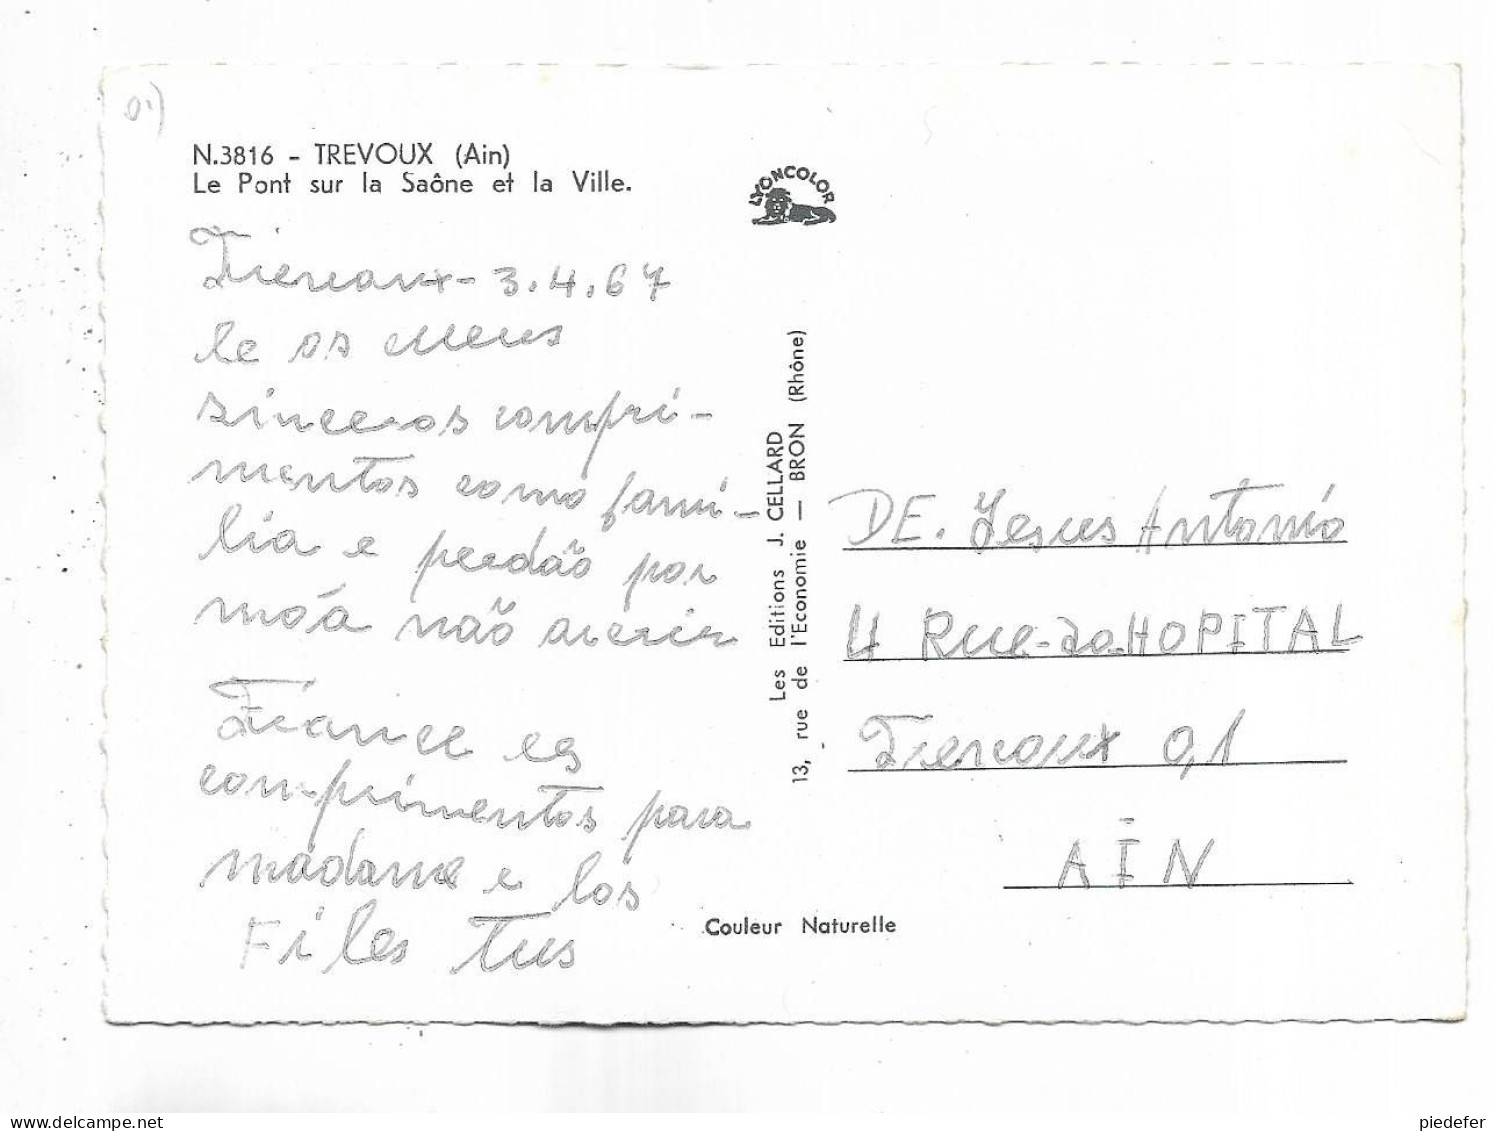 01)
N.3816 - TREVOUX (Ain)
Le Pont sur la Saône et la Ville.
LYONCOLOR
3.4.67
os Meus
sinceros compri-
mentos como fami-
lia e perdão por
não
es
com-primentos para
madame e los
Files Tus
Les Editions J. CELLARD
13, rue de l'Economie — BRON (Rhône)
DE. Jesus Antonio
4 Rue-da-HOPITAL
01
AIN
Couleur Naturelle
piedefer
delcampe.net